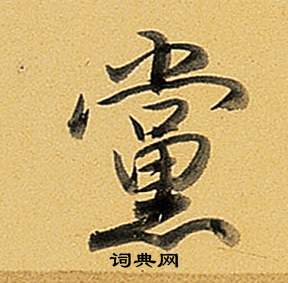 黨
词典网